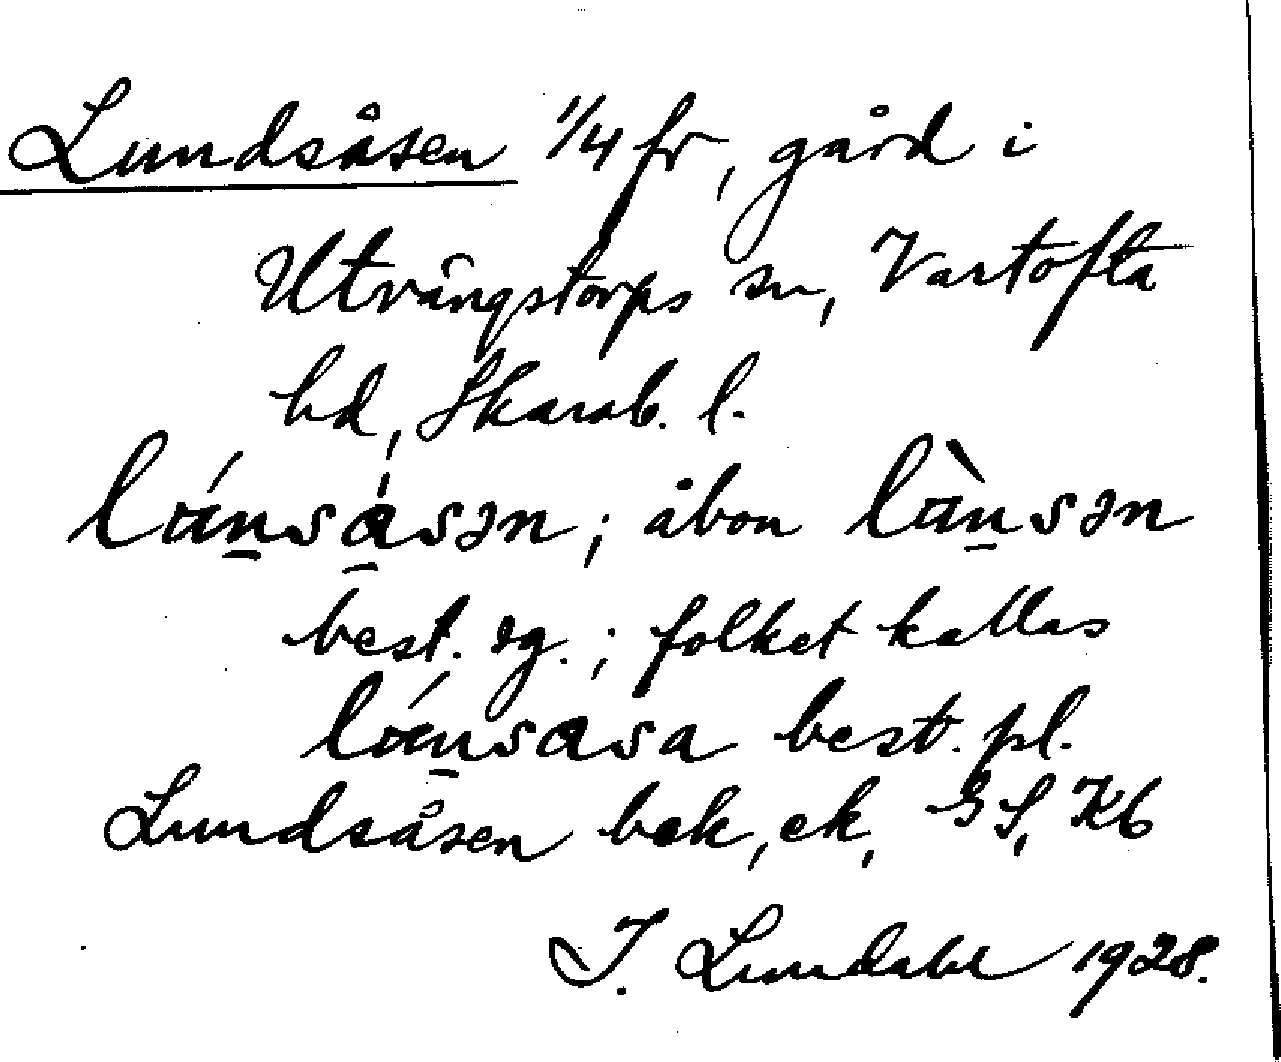 Lundsåsen 1/4 fr, gård i
Utvängstorps sn, Vartofta
hd, Skarab. l.
lánsásən; åbon lànsən
best. sg.; folket kallas
lánsasa best. pl.
Lundsåsen bek, ek, GS, Kb
I. Lundahl 1928.